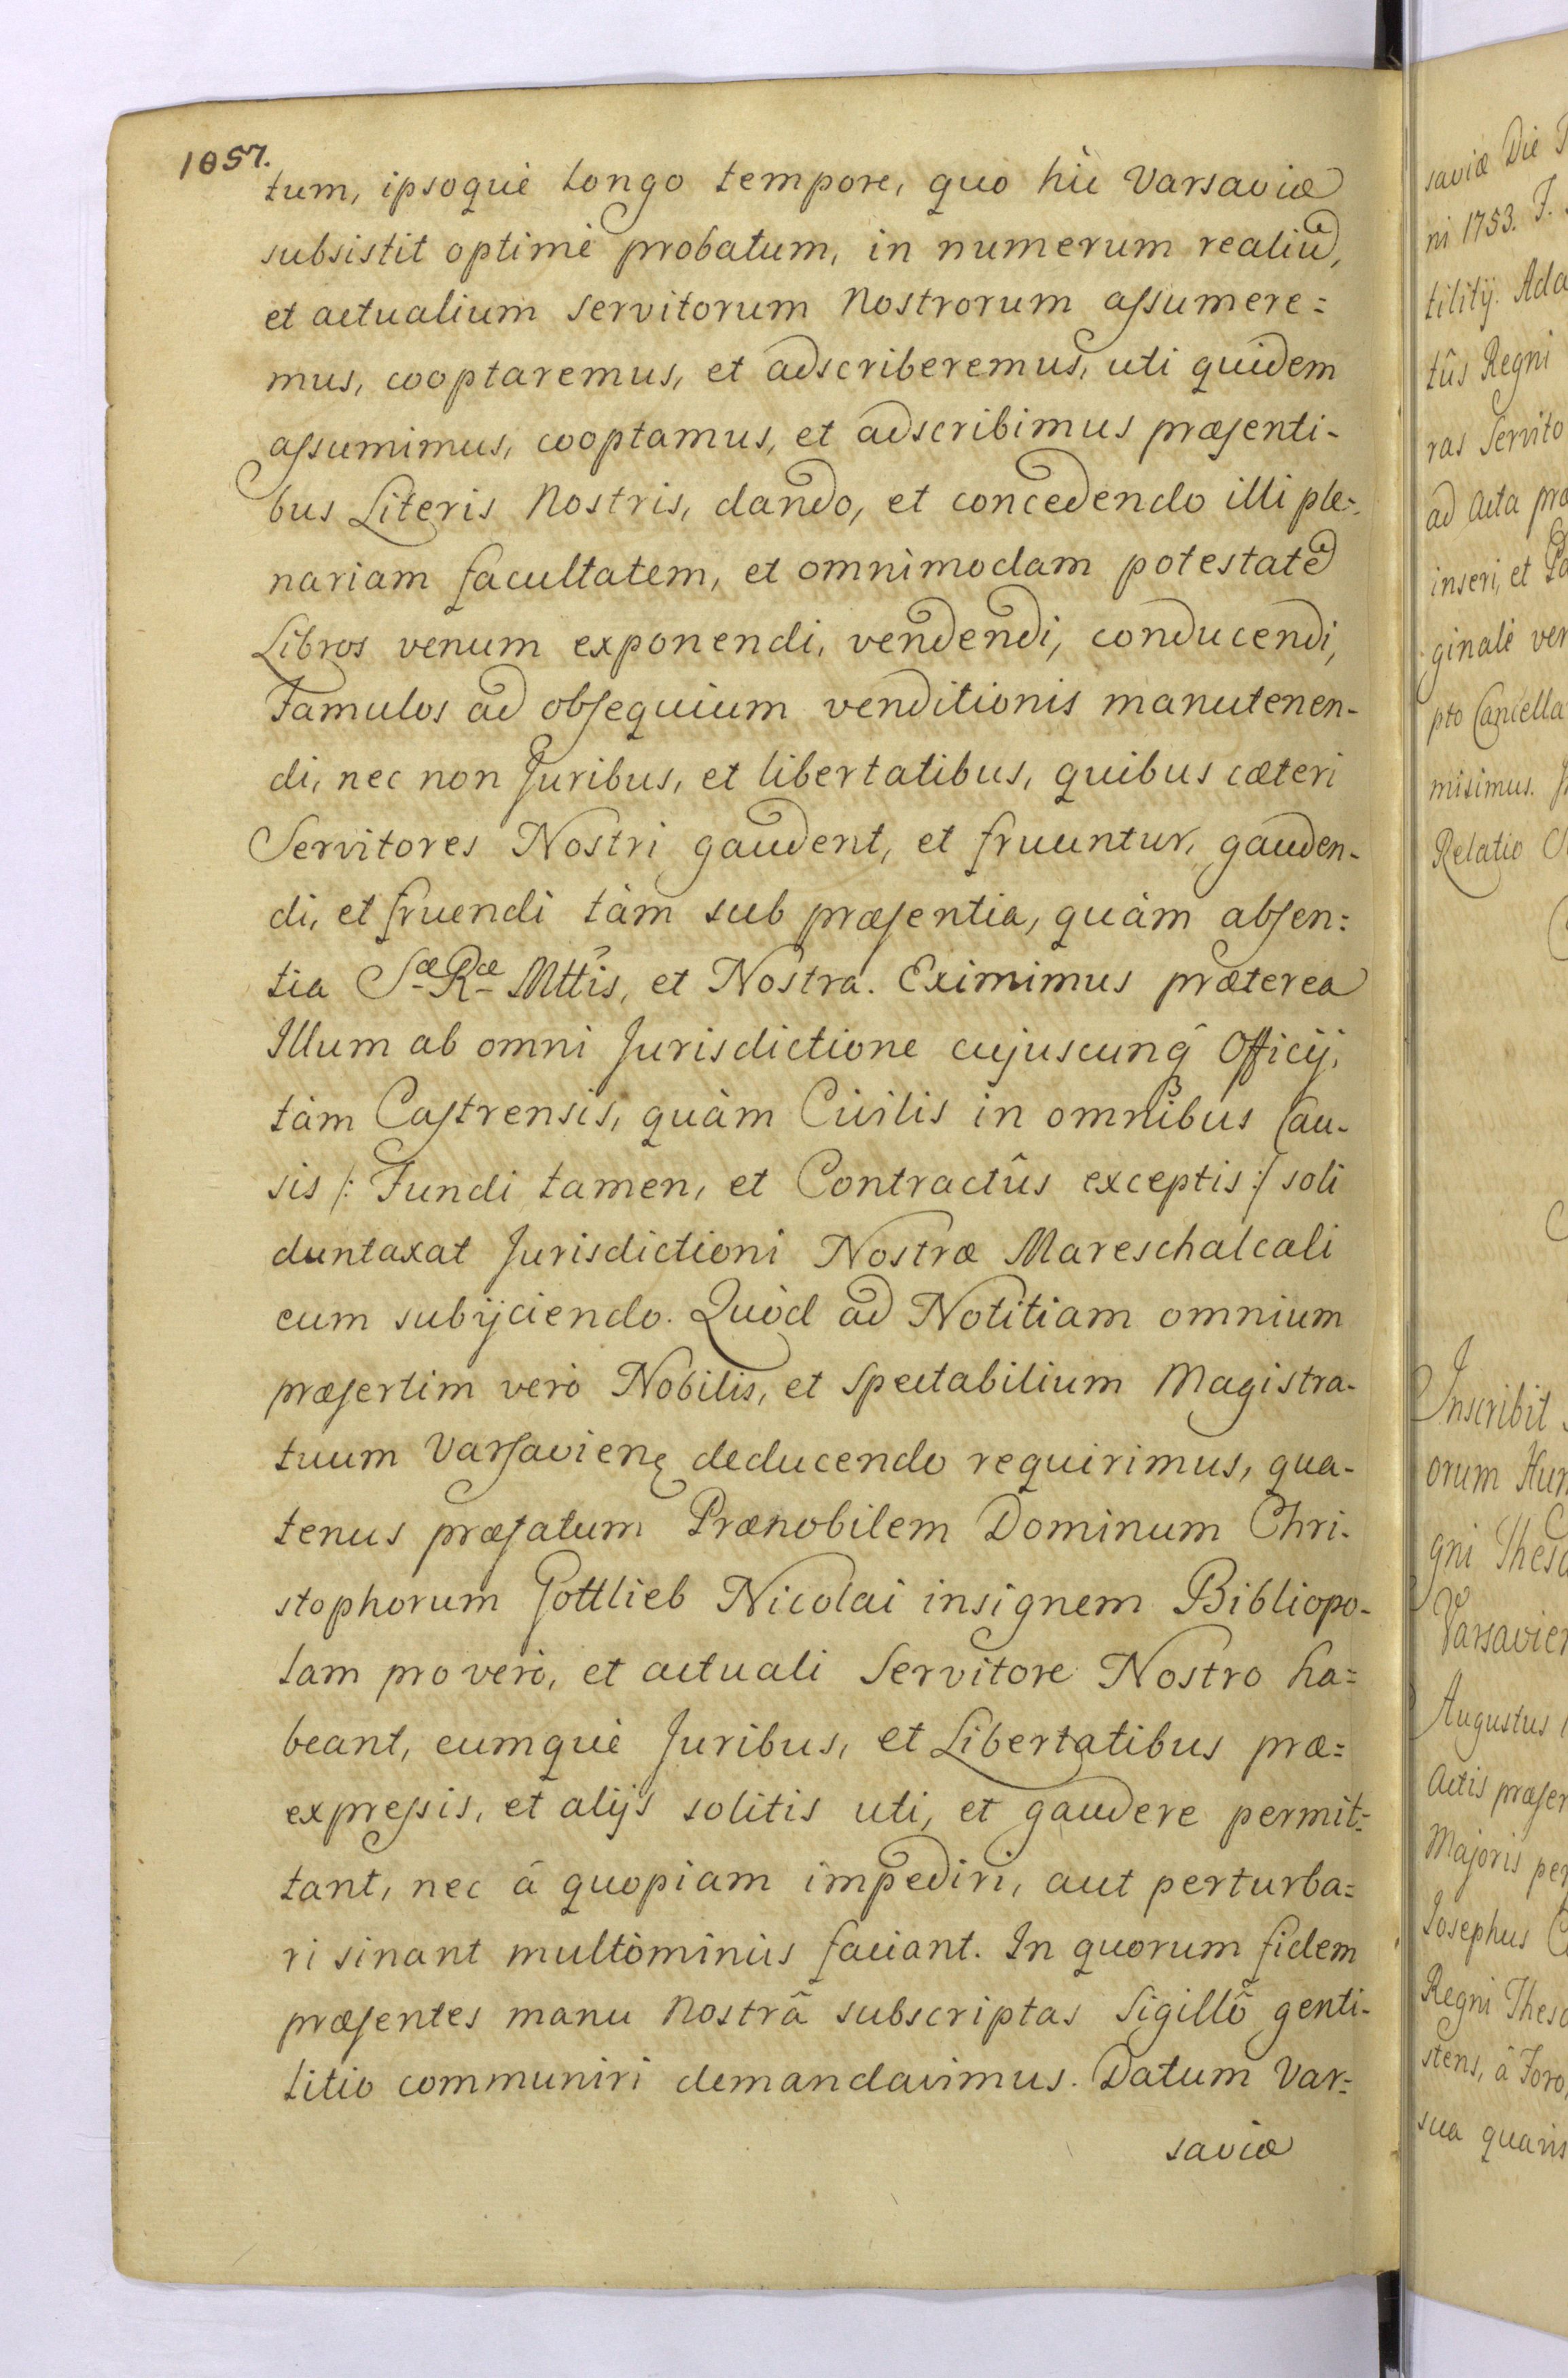 1057.
tum, ipsoquè longo tempore, quo hìc Varsaviæ
subsistit optimè probatum, in numerum realiū,
et actualium Servitorum Nostrorum assumere=
mus, cooptaremus, et adscriberemus, uti quidem
assumimus, cooptamus, et adscribimus præsenti-
bus Literis Nostris, dando, et concedendo illi ple=
nariam facultatem, et omnimodam potestatē
Libros venum exponendi, vendendi, conducendi,
Famulos ad obsequium venditionis manutenen-
di, nec non Juribus, et libertatibus, quibus cæteri
Servitores Nostri gaudent, et fruuntur, gauden-
di, et fruendi tàm sub præsentia, quàm absen=
tia Sæ Ræ Mttis, et Nostra. Eximimus præterea
Illum ab omni Jurisdictione cujuscunq̃ Officij,
tàm Castrensis, quàm Civilis in omnibus Cau-
sis /: Fundi tamen, et Contractûs exceptis :/ soli
duntaxat Jurisdictioni Nostræ Mareschalcali
eum subijciendo. Quòd ad Notitiam omnium
præsertim verò Nobilis, et Spectabilium Magistra-
tuum Varsavienę deducendo requirimus, qua-
tenus præfatum Prænobilem Dominum Chri-
stophorum Gottlieb Nicolai insignem Bibliopo-
lam pro verò, et actuali Servitore Nostro ha=
beant, eumquè Juribus, et Libertatibus præ=
expressis, et alijs solitis uti, et gaudere permit=
tant, nec à quopiam impediri, aut perturba=
ri sinant multòminùs faciant. In quorum fidem
præsentes manu Nostrâ subscriptas Sigillô genti-
litio communiri demandavimus. Datum Var=
saviæ
saviæ Die
ni 1753. J.
tilitij. Ada
tûs Regni
ras Servito
ad Acta pro
inseri, et
ginale ver
pto Cancella
misimus.
Relatio
Inscribit
orum Hun
gni Thesa
Varsavien
Augustus
Actis præser
Majoris per
Josephus
Regni Thesa
stens, â Foro,
sua quavis